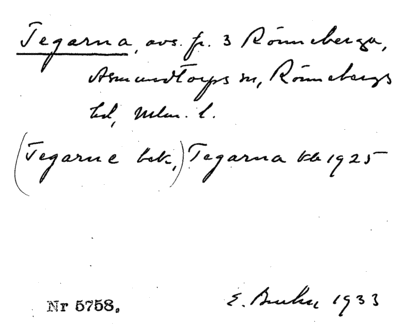 Tegarna, avs. fr. 3 Rönneberga,
Asmundtorps sn, Rönnebergs
hd, Mlm. l.
(Tegarne bek,) Tegarna kb 1925
Nr 5758. E. 1933